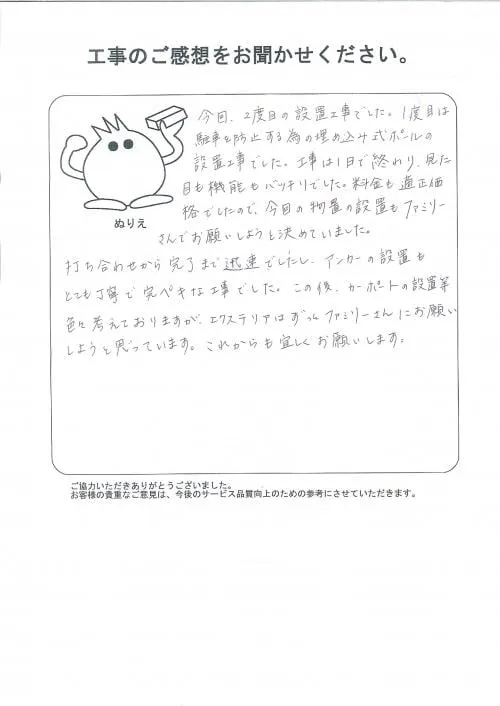 工事のご感想をお聞かせください。
今回、2度目の設置工事でした。1度目は
駐車を防止する為の埋め込み式ポールの
設置工事でした。工事は1日で終わり、見た
目も機能もバッチリでした。料金も適正価
格でしたので、今回の物置の設置もファミリー
さんでお願いしようと決めていました。
ぬりえ
打ち合わせから完了まで迅速でしたし、アンカーの設置も
とても丁寧で完ペキな工事でした。この後、カーポートの設置等
色々考えておりますが、エクステリアはずっとファミリーさんにお願い
しようと思っています。これからも宜しくお願いします。
ご協力いただきありがとうございました。
お客様の貴重なご意見は、今後のサービス品質向上のための参考にさせていただきます。